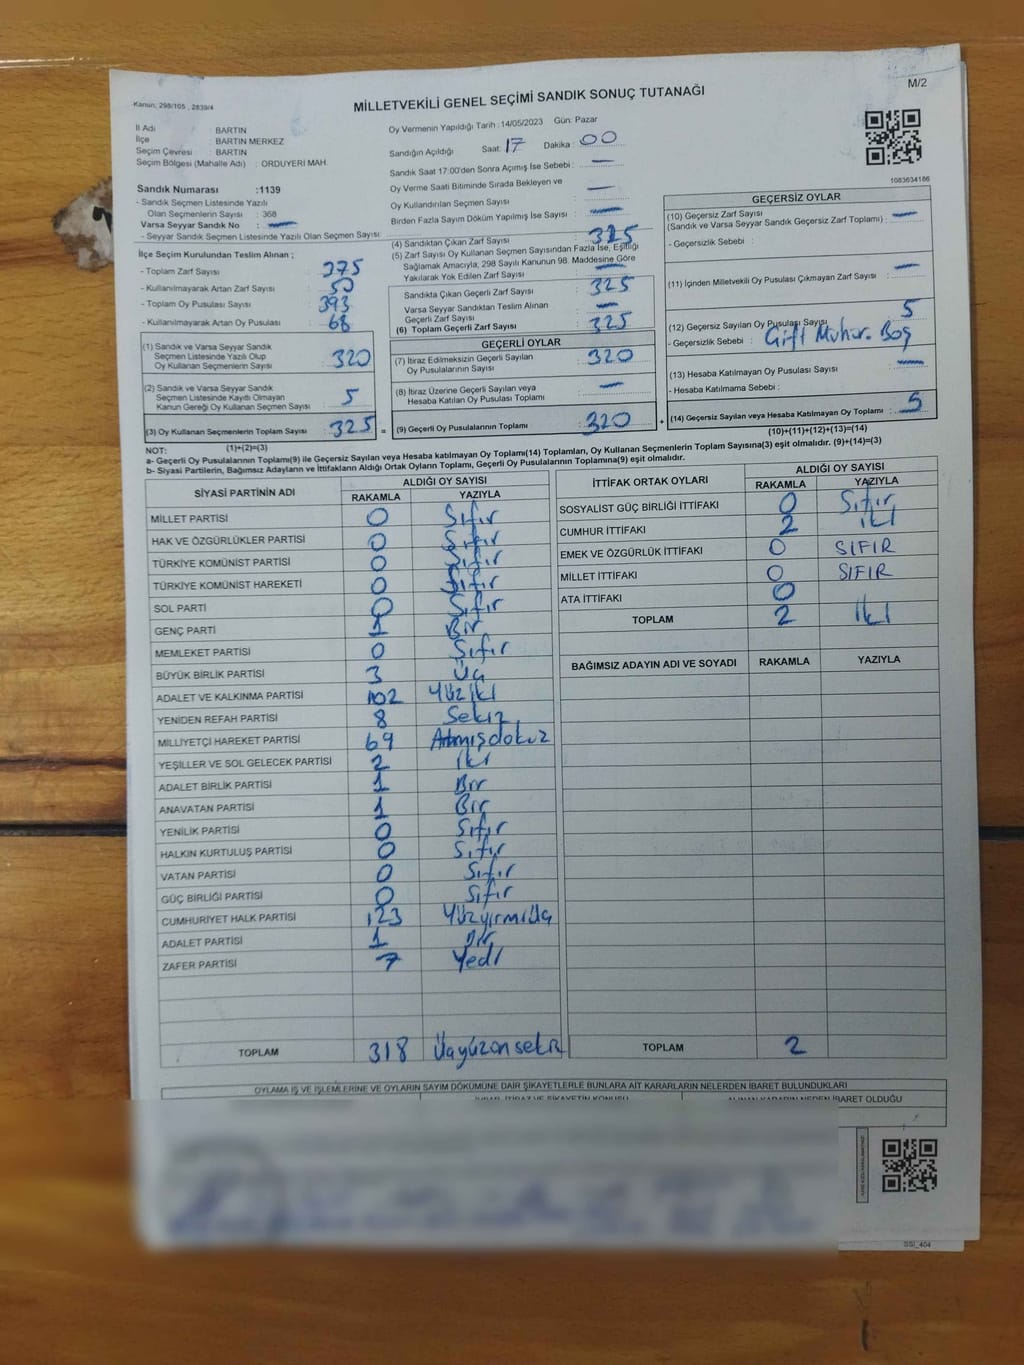 Kanun; 298/105 , 2839/4
M/2
MİLLETVEKİLİ GENEL SEÇİMİ SANDIK SONUÇ TUTANAĞI
İl Adı : BARTIN
İlçe : BARTIN MERKEZ
Seçim Çevresi : BARTIN
Seçim Bölgesi (Mahalle Adı) : ORDUYERİ MAH.
Sandık Numarası :1139
- Sandık Seçmen Listesinde Yazılı
Olan Seçmenlerin Sayısı : 368
Varsa Seyyar Sandık No : —
- Seyyar Sandık Seçmen Listesinde Yazılı Olan Seçmen Sayısı
Oy Vermenin Yapıldığı Tarih : 14/05/2023 Gün: Pazar
Sandığın Açıldığı Saat: 17 Dakika : 00
Sandık Saat 17:00'den Sonra Açımış İse Sebebi : —
Oy Verme Saati Bitiminde Sırada Bekleyen ve
Oy Kullandırılan Seçmen Sayısı : —
Birden Fazla Sayım Döküm Yapılmış İse Sayısı : —
1083634186
İlçe Seçim Kurulundan Teslim Alınan ;
- Toplam Zarf Sayısı : 375
- Kullanılmayarak Artan Zarf Sayısı : 50
- Toplam Oy Pusulası Sayısı : 393
- Kullanılmayarak Artan Oy Pusulası : 68
(1) Sandık ve Varsa Seyyar Sandık
Seçmen Listesinde Yazılı Olup
Oy Kullanan Seçmenlerin Sayısı : 320
(2) Sandık ve Varsa Seyyar Sandık
Seçmen Listesinde Kayıtlı Olmayan
Kanun Gereği Oy Kullanan Seçmen Sayısı : 5
(3) Oy Kullanan Seçmenlerin Toplam Sayısı : 325
(1)+(2)=(3)
(4) Sandıktan Çıkan Zarf Sayısı : 325
(5) Zarf Sayısı Oy Kullanan Seçmen Sayısından Fazla İse, Eşitliği
Sağlamak Amacıyla, 298 Sayılı Kanunun 98. Maddesine Göre
Yakılarak Yok Edilen Zarf Sayısı : —
Sandıkta Çıkan Geçerli Zarf Sayısı : 325
Varsa Seyyar Sandıktan Teslim Alınan
Geçerli Zarf Sayısı : —
(6) Toplam Geçerli Zarf Sayısı : 325
GEÇERLİ OYLAR
(7) İtiraz Edilmeksizin Geçerli Sayılan
Oy Pusulalarının Sayısı : 320
(8) İtiraz Üzerine Geçerli Sayılan veya
Hesaba Katılan Oy Pusulası Toplamı : —
= (9) Geçerli Oy Pusulalarının Toplamı : 320
GEÇERSİZ OYLAR
(10) Geçersiz Zarf Sayısı
(Sandık ve Varsa Seyyar Sandık Geçersiz Zarf Toplamı) : —
- Geçersizlik Sebebi :
(11) İçinden Milletvekili Oy Pusulası Çıkmayan Zarf Sayısı : —
(12) Geçersiz Sayılan Oy Pusulası Sayısı : 5
- Geçersizlik Sebebi : Çift Mühür. Boş
(13) Hesaba Katılmayan Oy Pusulası Sayısı : —
- Hesaba Katılmama Sebebi :
+ (14) Geçersiz Sayılan veya Hesaba Katılmayan Oy Toplamı : 5
(10)+(11)+(12)+(13)=(14)
NOT:
a- Geçerli Oy Pusulalarının Toplamı(9) ile Geçersiz Sayılan veya Hesaba katılmayan Oy Toplamı(14) Toplamları, Oy Kullanan Seçmenlerin Toplam Sayısına(3) eşit olmalıdır. (9)+(14)=(3)
b- Siyasi Partilerin, Bağımsız Adayların ve İttifakların Aldığı Ortak Oyların Toplamı, Geçerli Oy Pusulalarının Toplamına(9) eşit olmalıdır.
SİYASİ PARTİNİN ADI ALDIĞI OY SAYISI
RAKAMLA YAZIYLA
MİLLET PARTİSİ 0 Sıfır
HAK VE ÖZGÜRLÜKLER PARTİSİ 0 Sıfır
TÜRKİYE KOMÜNİST PARTİSİ 0 Sıfır
TÜRKİYE KOMÜNİST HAREKETİ 0 Sıfır
SOL PARTİ 0 Sıfır
GENÇ PARTİ 1 Bir
MEMLEKET PARTİSİ 0 Sıfır
BÜYÜK BİRLİK PARTİSİ 3 Üç
ADALET VE KALKINMA PARTİSİ 102 Yüz iki
YENİDEN REFAH PARTİSİ 8 Sekiz
MİLLİYETÇİ HAREKET PARTİSİ 69 Atmışdokuz
YEŞİLLER VE SOL GELECEK PARTİSİ 2 iki
ADALET BİRLİK PARTİSİ 1 Bir
ANAVATAN PARTİSİ 1 Bir
YENİLİK PARTİSİ 0 Sıfır
HALKIN KURTULUŞ PARTİSİ 0 Sıfır
VATAN PARTİSİ 0 Sıfır
GÜÇ BİRLİĞİ PARTİSİ 0 Sıfır
CUMHURİYET HALK PARTİSİ 123 Yüzyirmiüç
ADALET PARTİSİ 1 Bir
ZAFER PARTİSİ 7 Yedi
TOPLAM 318 Üçyüzonsekiz
İTTİFAK ORTAK OYLARI ALDIĞI OY SAYISI
RAKAMLA YAZIYLA
SOSYALİST GÜÇ BİRLİĞİ İTTİFAKI 0 Sıfır
CUMHUR İTTİFAKI 2 iki
EMEK VE ÖZGÜRLÜK İTTİFAKI 0 SIFIR
MİLLET İTTİFAKI 0 SIFIR
ATA İTTİFAKI 0
TOPLAM 2 İki
BAĞIMSIZ ADAYIN ADI VE SOYADI RAKAMLA YAZIYLA
TOPLAM 2
OYLAMA İŞ VE İŞLEMLERİNE VE OYLARIN SAYIM DÖKÜMÜNE DAİR ŞİKAYETLERLE BUNLARA AİT KARARLARIN NELERDEN İBARET BULUNDUKLARI
ALINAN KARARIN NEDEN İBARET OLDUĞU
SSI_404